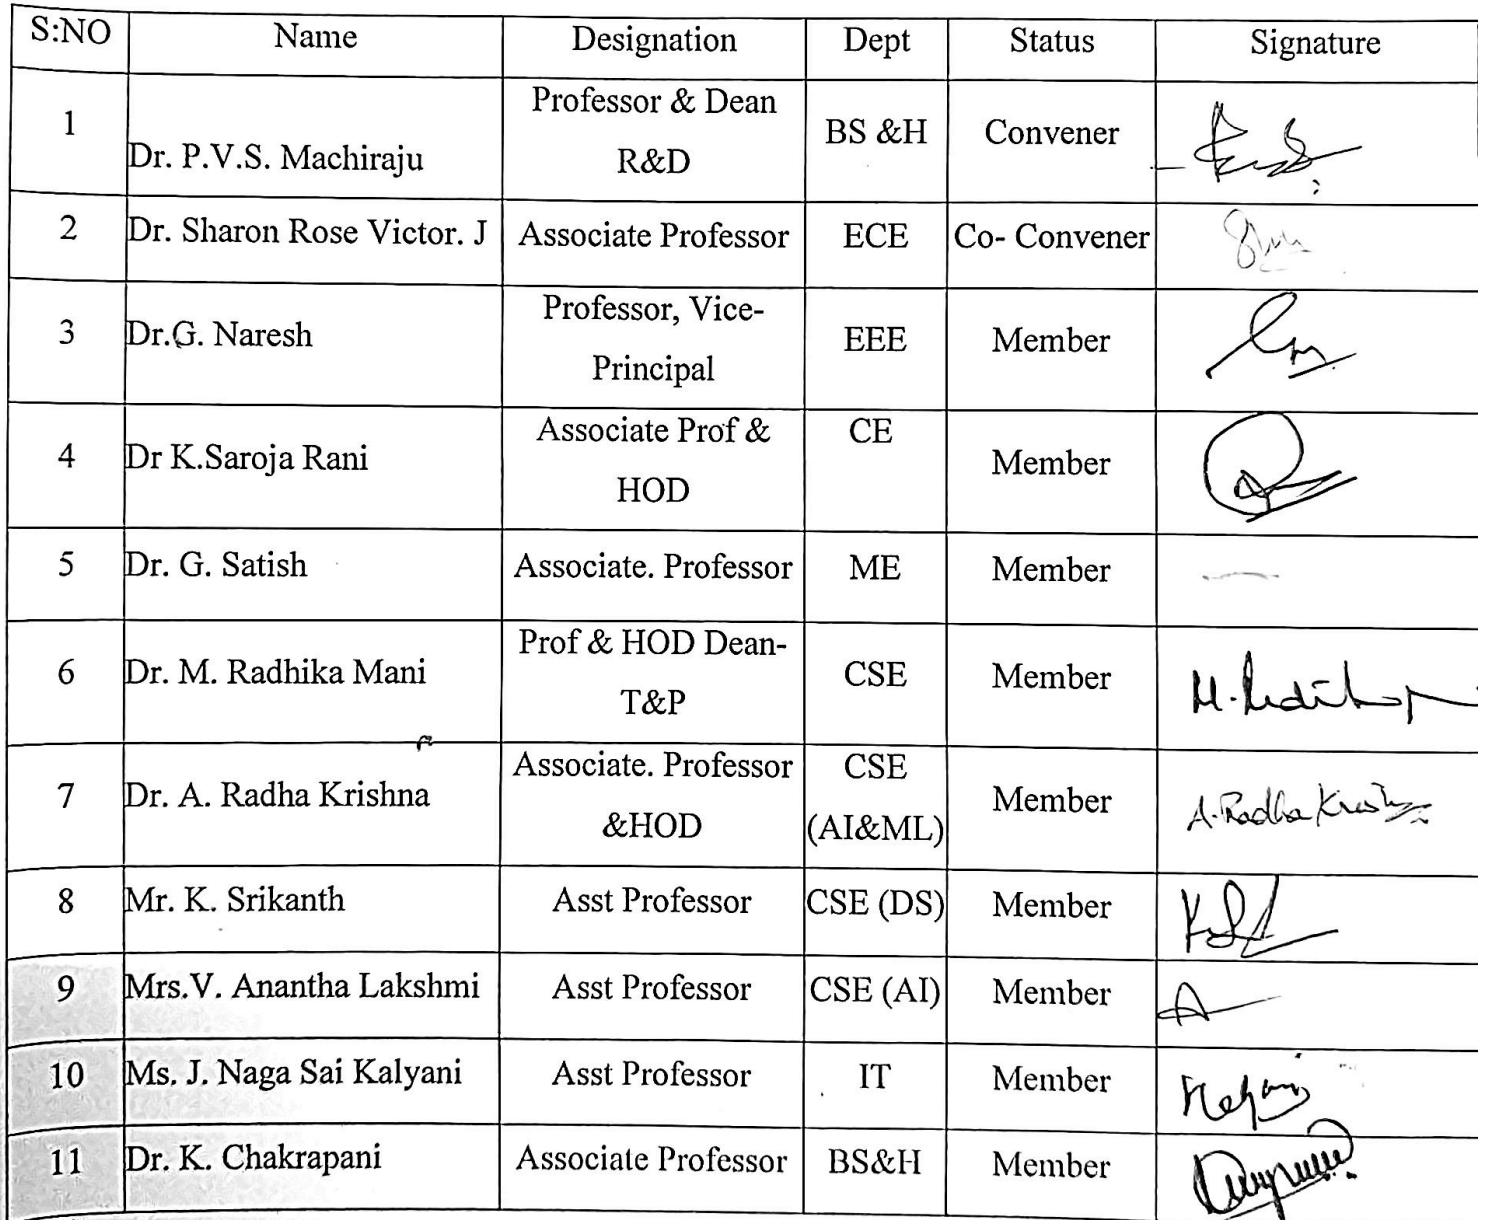 S:NO Name Designation Dept Status Signature
1 Dr. P.V.S. Machiraju Professor & Dean R&D BS &H Convener
2 Dr. Sharon Rose Victor. J Associate Professor ECE Co- Convener
3 Dr.G. Naresh Professor, Vice-Principal EEE Member
4 Dr K.Saroja Rani Associate Prof & HOD CE Member
5 Dr. G. Satish Associate. Professor ME Member
6 Dr. M. Radhika Mani Prof & HOD Dean-T&P CSE Member
7 Dr. A. Radha Krishna Associate. Professor &HOD CSE (AI&ML) Member A.Radha Krishna
8 Mr. K. Srikanth Asst Professor CSE (DS) Member
9 Mrs.V. Anantha Lakshmi Asst Professor CSE (AI) Member
10 Ms. J. Naga Sai Kalyani Asst Professor IT Member
11 Dr. K. Chakrapani Associate Professor BS&H Member